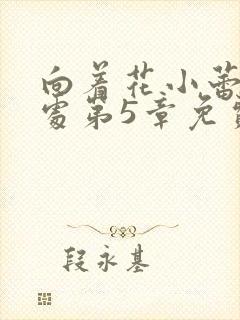 向着花小蕾
处第5章免费
段永基